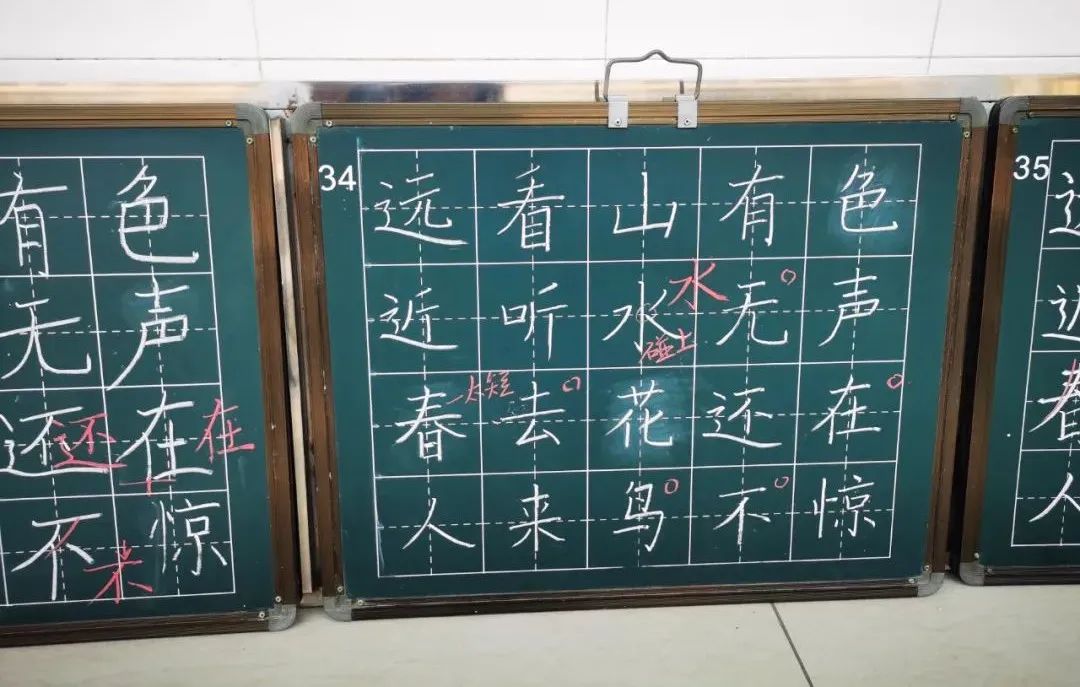 有色
无声
还在
还
在
不惊
来
34
远看山有色
近听水无声
水
碰上
太短
春去花还在
人来鸟不惊
35
远
近
春
人